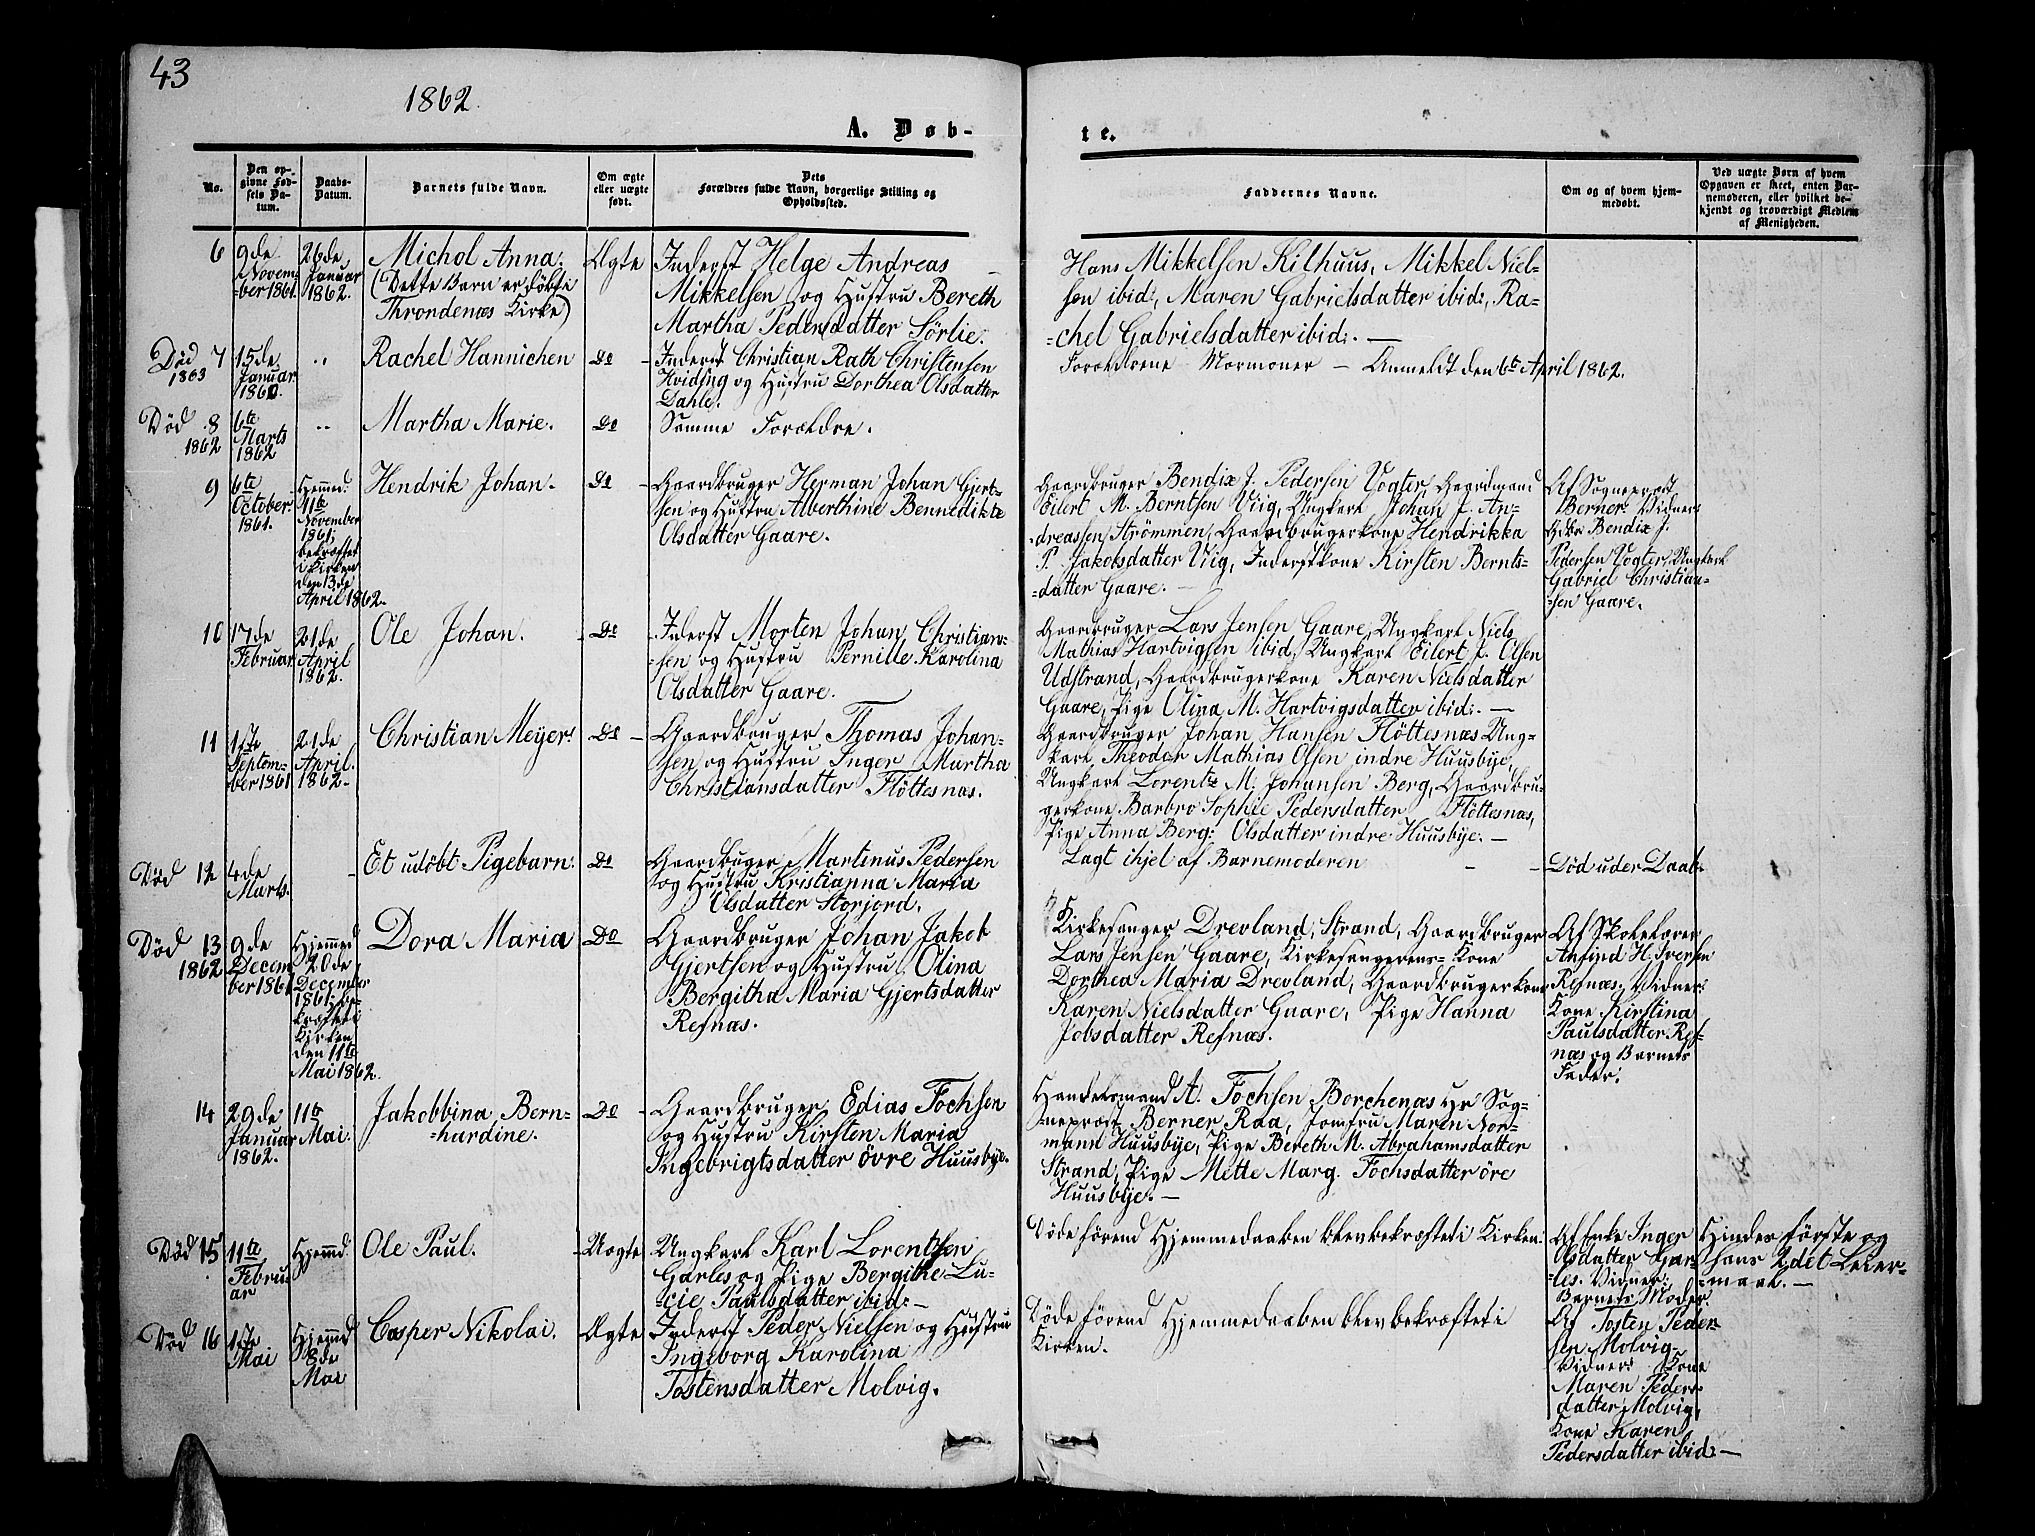 43
1862.
A. Døb-
te.
No.
Den op-
givne Fød-
sels Da-
tum.
Daabs-
Datum.
Barnets fulde Navn.
Om ægte
eller uægte
født.
Dets
Forældres fulde Navn, borgerlige Stilling og
Opholdssted.
Faddernes Navne.
Om og af hvem hjem-
medøbt.
Ved uægte Børn af hvem
Opgaven er skeet, enten Bar-
nemoderen, eller hvilket be-
kjendt og troværdigt Medlem
af Menigheden.
6
9de
Novem-
=ber 1861.
26de
Januar
1862.
Michol Anna.
(Dette Barn er døbt i
Throndenæs Kirke)
Ægte
Inderst Helge Andreas
Mikkelsen og Hustru Bereth
Martha Pedersdatter Sørlie.
Hans Mikkelsen Kilhuus, Mikkel Niel-
sen ibid:, Maren Gabrielsdatter ibid:, Ra-
=chel Gabrielsdatter ibid:. —
Død 7
1863
15de
Januar
1860.
..
Rachel Hannichen
Do
Inderst Christian Rath Christensen
Hviding og Hustru Dorthea Olsdatter
Dahle.
Forældrene Mormoner — Anmeldt den 6te April 1862.
Død 8
1862
6te
Marts
1862
..
Martha Marie.
Do
Samme Forældre.
9
6te
October
1861.
Hjemmed:
11te
November
1861;
bekræftet
i Kirken
den 13de
April 1862.
Hendrik Johan.
Do
Gaardbruger Herman Johan Gjert-
sen og Hustru Alberthine Bennedikte
Olsdatter Gaare.
Gaardbruger Bendix J. Pedersen Vogter, Gaardmand
Eilert M. Berntsen Viig, Ungkarl Johan J. An-
dreassen Strømmen, Gaardbrugerkone Hendrikka
P. Jakobsdatter Viig, Inderstkone Kirsten Bernts-
=datter Gaare. —
Af Sogneprest
Berner. Vidner:
Gdbr Bendix J.
Pedersen Vogter, Ungkarl
Gabriel Christian-
=sen Gaare.
10
17de
Februar
21de
April
1862.
Ole Johan.
Do
Inderst Morten Johan Christian-
=sen og Hustru Pernille Karolina
Olsdatter Gaare.
Gaardbruger Lars Jensen Gaare, Ungkarl Niels
Mathias Hartvigsen ibid, Ungkarl Eilert J. Olsen
Udstrand, Gaardbrugerkone Karen Nielsdatter
Gaare, Pige Olina M. Hartvigsdatter ibid:. —
11
1ste
Septem-
ber 1861
21de
April.
1862.
Christian Meyer.
Do
Gaardbruger Thomas Johan=
sen og Hustru Inger Martha
Christiansdatter Fløttesnæs.
Gaardbruger Johan Hansen Fløttesnæs Ung-
karl, Theodor Mathias Olsen indre Huusbye,
Ungkarl Lorentz M. Johansen Berg, Gaardbru-
gerkone Barbro Sophie Pedersdatter Fløttesnæs,
Pige Anna Berg: Olsdatter indre Huusbye. —
Død 12
4de
Marts.
Et udøbt Pigebarn.
Do
Gaardbuger Martinus Pedersen
og Hustru Kristianna Maria
Olsdatter Storjord.
Lagt ihjel af Barnemoderen
Død uder Daab.
Død 13
1862
9de
Decem
ber 1861
Hjemmed
20de
December
1861; be-
kræftet i
Kirken
den 11te
Mai 1862.
Dora Maria
Do
Gaardbruger Johan Jakob
Gjertsen og Hustru Olina
Bergitha Maria Gjertsdatter
Refnæs.
Kirkesanger Drevland, Strand, Gaardbruger
Lars Jensen Gaare, Kirkesangerens= Kone
Dorthea Maria Drevland, Gaardbrugerkone
Karen Nielsdatter Gaare, Pige Hanna
Jobsdatter Refnæs.
Af Skolelærer
Anfind H. Iversen
Refnæs. Vidner:
Kone Kirstina
Paulsdatter Ref-
næs og Barnets
Fader.
14
29de
Januar
1862.
11te
Mai.
Jakobbina Bern=
=hardine.
Do
Gaardbruger Edias Fochsen
og Hustru Kirsten Maria
Ingebrigtsdatter øvre Huusbye.
Handelsmand A. Fochsen Borchenæs Hr Sog-
neprost Berner Raa, Jomfru Maren Nor-
mann Huusbye, Pige Bereth M. Abrahamsdatter
Strand, Pige Mette Marg. Fochsdatter øre
Huusbye. —
Død 15
11te
Febru-
ar
Hjemmd.
Ole Paul.
Uægte
Ungkarl Karl Lorentsen
Garles og Pige Bergithe Lu-
=cie Paulsdatter ibid:—
Døde førend Hjemmedaaben blev bekræftet i Kirken.
Af Enke Inger
Olsdatter Gar-
=les. Vidner:
Barnets Moder.
Hendes første og
hans 2det Leier-
=maal. —
Død 16
1ste
Mai
Hjemmd
8de
Mai
Casper Nikolai.
Ægte
Inderst Peder Nielsen og Hustru
Ingeborg Karolina
Tostensdatter Molvig.
Døde førend Hjemmedaaben blev bekræftet i
Kirken.
Af Tosten Peder-
sen Molvig.
Vidner: Kone
Maren Peders-
datter Molvig,
Kone Karen
Pedersdatter ibid: —